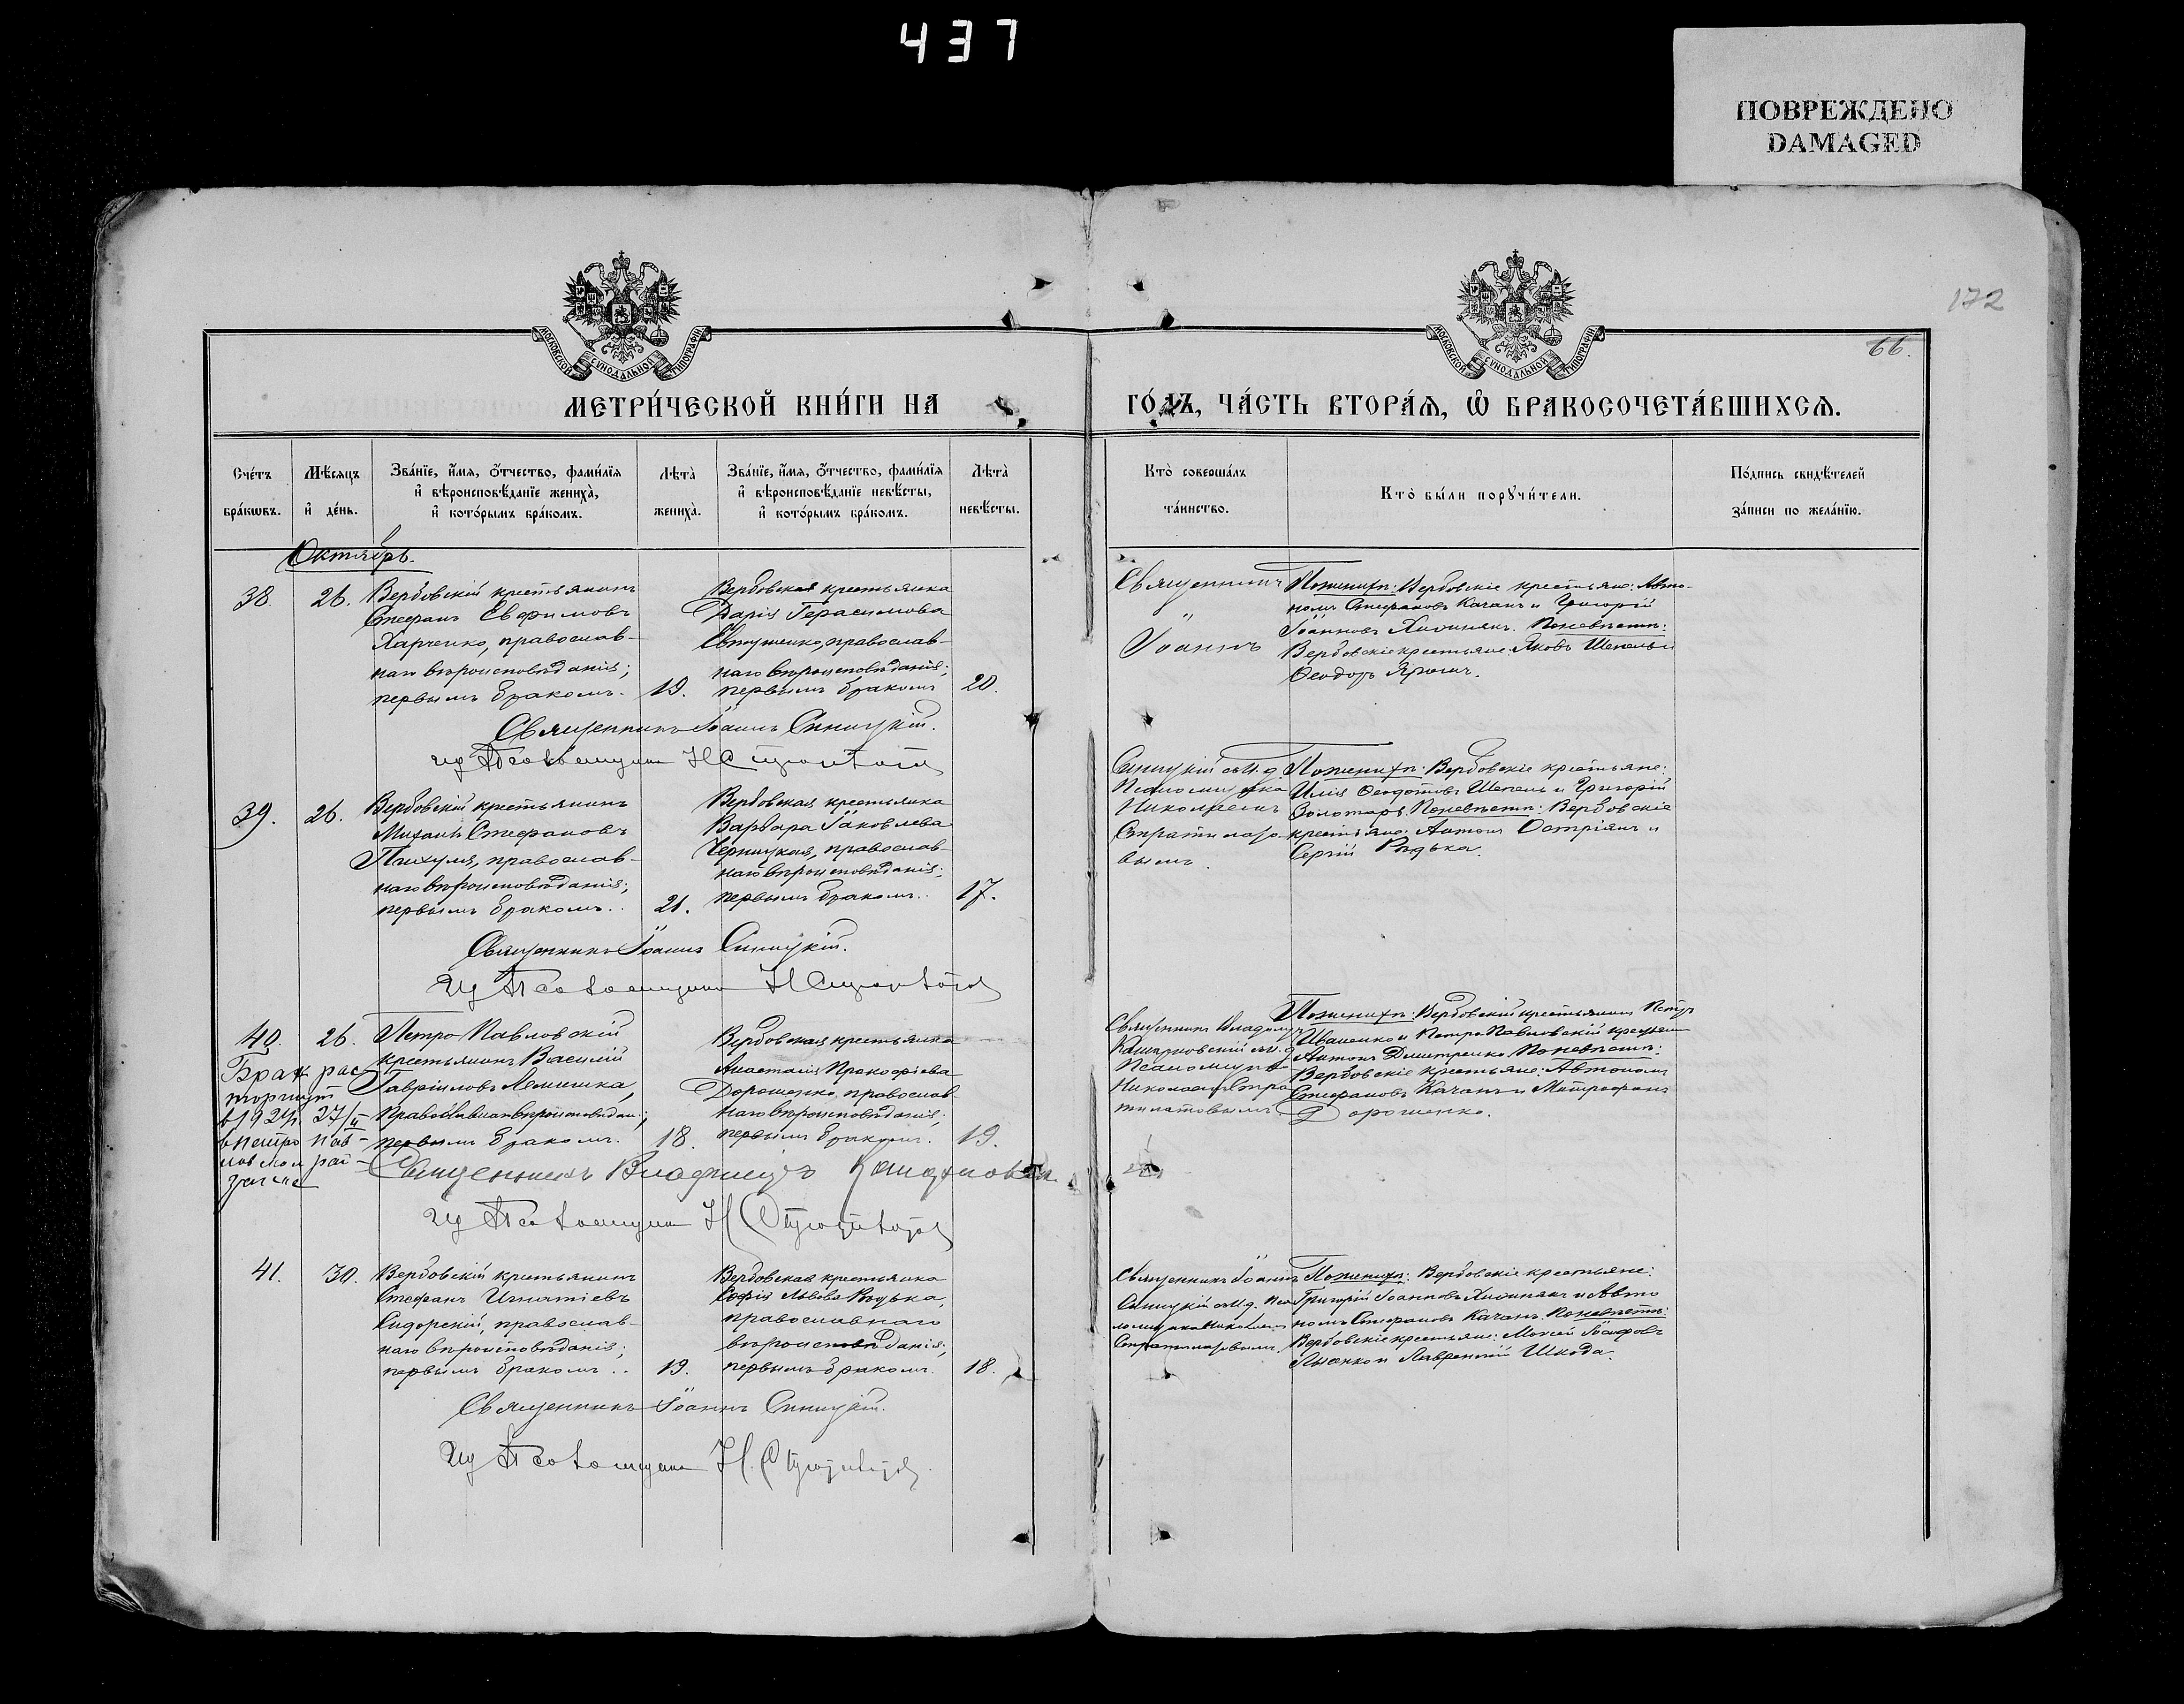 437
ПОВРЕЖДЕНО
DAMAGED
172
66.
МОСКОВСКОЙ СУНОДАЛЬНОЙ ТИПОГРАФІИ
МОСКОВСКОЙ СУНОДАЛЬНОЙ ТИПОГРАФІИ
МЕТРИ́ЧЕСКОЙ КНИ́ГИ НА
ГО́ДЪ, ЧА́СТЬ ВТОРА́Я, Ѡ БРАКОСОЧЕТА́ВШИХСЯ.
Сче́тъ
бра́кωвъ.
Мѣ́сяцъ
и҆ де́нь.
Зва́нїе, и҆́мя, ѻ҆́тчество, фами́лїя
и҆ вѣроисповѣ́данїе жениха̀,
и҆ кото́рымъ бра́комъ.
Лѣ́та̀
жениха̀.
Зва́нїе, и҆́мя, ѻ҆́тчество, фами́лїя
и҆ вѣроисповѣ́данїе невѣ́сты,
и҆ кото́рымъ бра́комъ.
Лѣ́та̀
невѣ́сты.
Кто̀ соверша́лъ
та́инство.
Кто̀ бы́ли порꙋчи́тели.
По́дпись свидѣ́телей
за́писи по жела́нїю.
Октябрь.
38.
26.
Вербовскій крестьянинъ
Стефанъ Евфимовъ
Харченко, православ-
наго вѣроисповѣданія;
первымъ бракомъ.
19.
Вербовская крестьянка
Дарія Герасимова
православ-
наго вѣроисповѣданія;
первымъ бракомъ
20.
Священникъ
Іоаннъ
Поженихѣ: Вербовскіе крестьяне: Авто-
номъ Стефановъ Качанъ и Григорій
Іоанновъ Поневѣстѣ:
Вербовскіе крестьяне: Яковъ Шепель и
Ѳеодоръ
Священникъ Іоаннъ Синицкій.
39.
26.
Вербовскій крестьянинъ
Михаилъ Стефановъ
православ-
наго вѣроисповѣданія;
первымъ бракомъ..
21.
Вербовская крестьянка
Варвара Іаковлева
Черницкая, православ-
наго вѣроисповѣданія;
первымъ бракомъ..
17.
Синицкій съ И. д.
Псаломщика
Николаемъ
Поженихѣ: Вербовскіе крестьяне:
Илія Ѳеодотовъ Шепель и Григорій
Золотарь. Поневѣстѣ: Вербовскіе
крестьяне: Антонъ и
Сергій Рядька.
Священникъ Іоаннъ Синицкій.
40.
26.
Петро Павловскій
крестьянинъ Василій
Гавріиловъ Лемешка,
первымъ бракомъ.
18.
Вербовская крестьянка
Анастасія Прокофіева
Дорошенко, православ-
наго вѣроисповѣданія;
первымъ бракомъ.
19.
Брак рас-
торгнут
в 192 27/II
в петро пав-
ловском рай-
загсе
Священникъ Владиміръ
съ И. д.
Псаломщика
Николаемъ
Поженихѣ: Вербовскій крестьянинъ Петръ
Иващенко и Петро Павловскій
Антонъ Дмитренко. Поневѣстѣ:
Вербовскіе крестьяне: Автономъ
Стефановъ Качанъ и Митрофанъ
Дорошенко.
Священникъ Владиміръ
41.
30.
Вербовскій крестьянинъ
Стефанъ Игнатіевъ
Сидорскій, православ-
наго вѣроисповѣданія;
первымъ бракомъ..
19.
Вербовская крестьянка
Софія Львова Рядька,
православнаго
вѣроисповѣданія;
первымъ бракомъ.
18.
Священникъ Іоаннъ
Синицкій съ И. д. Пса-
ломщика Николаемъ
Поженихѣ: Вербовскіе крестьяне:
Григорій Іоанновъ и Авто
номъ Стефановъ Качанъ. Поневѣстѣ:
Вербовскіе крестьяне: Моисей Іосифовъ
Лысенко и Лаврентій Шкода.
Священникъ Іоаннъ Синицкій.